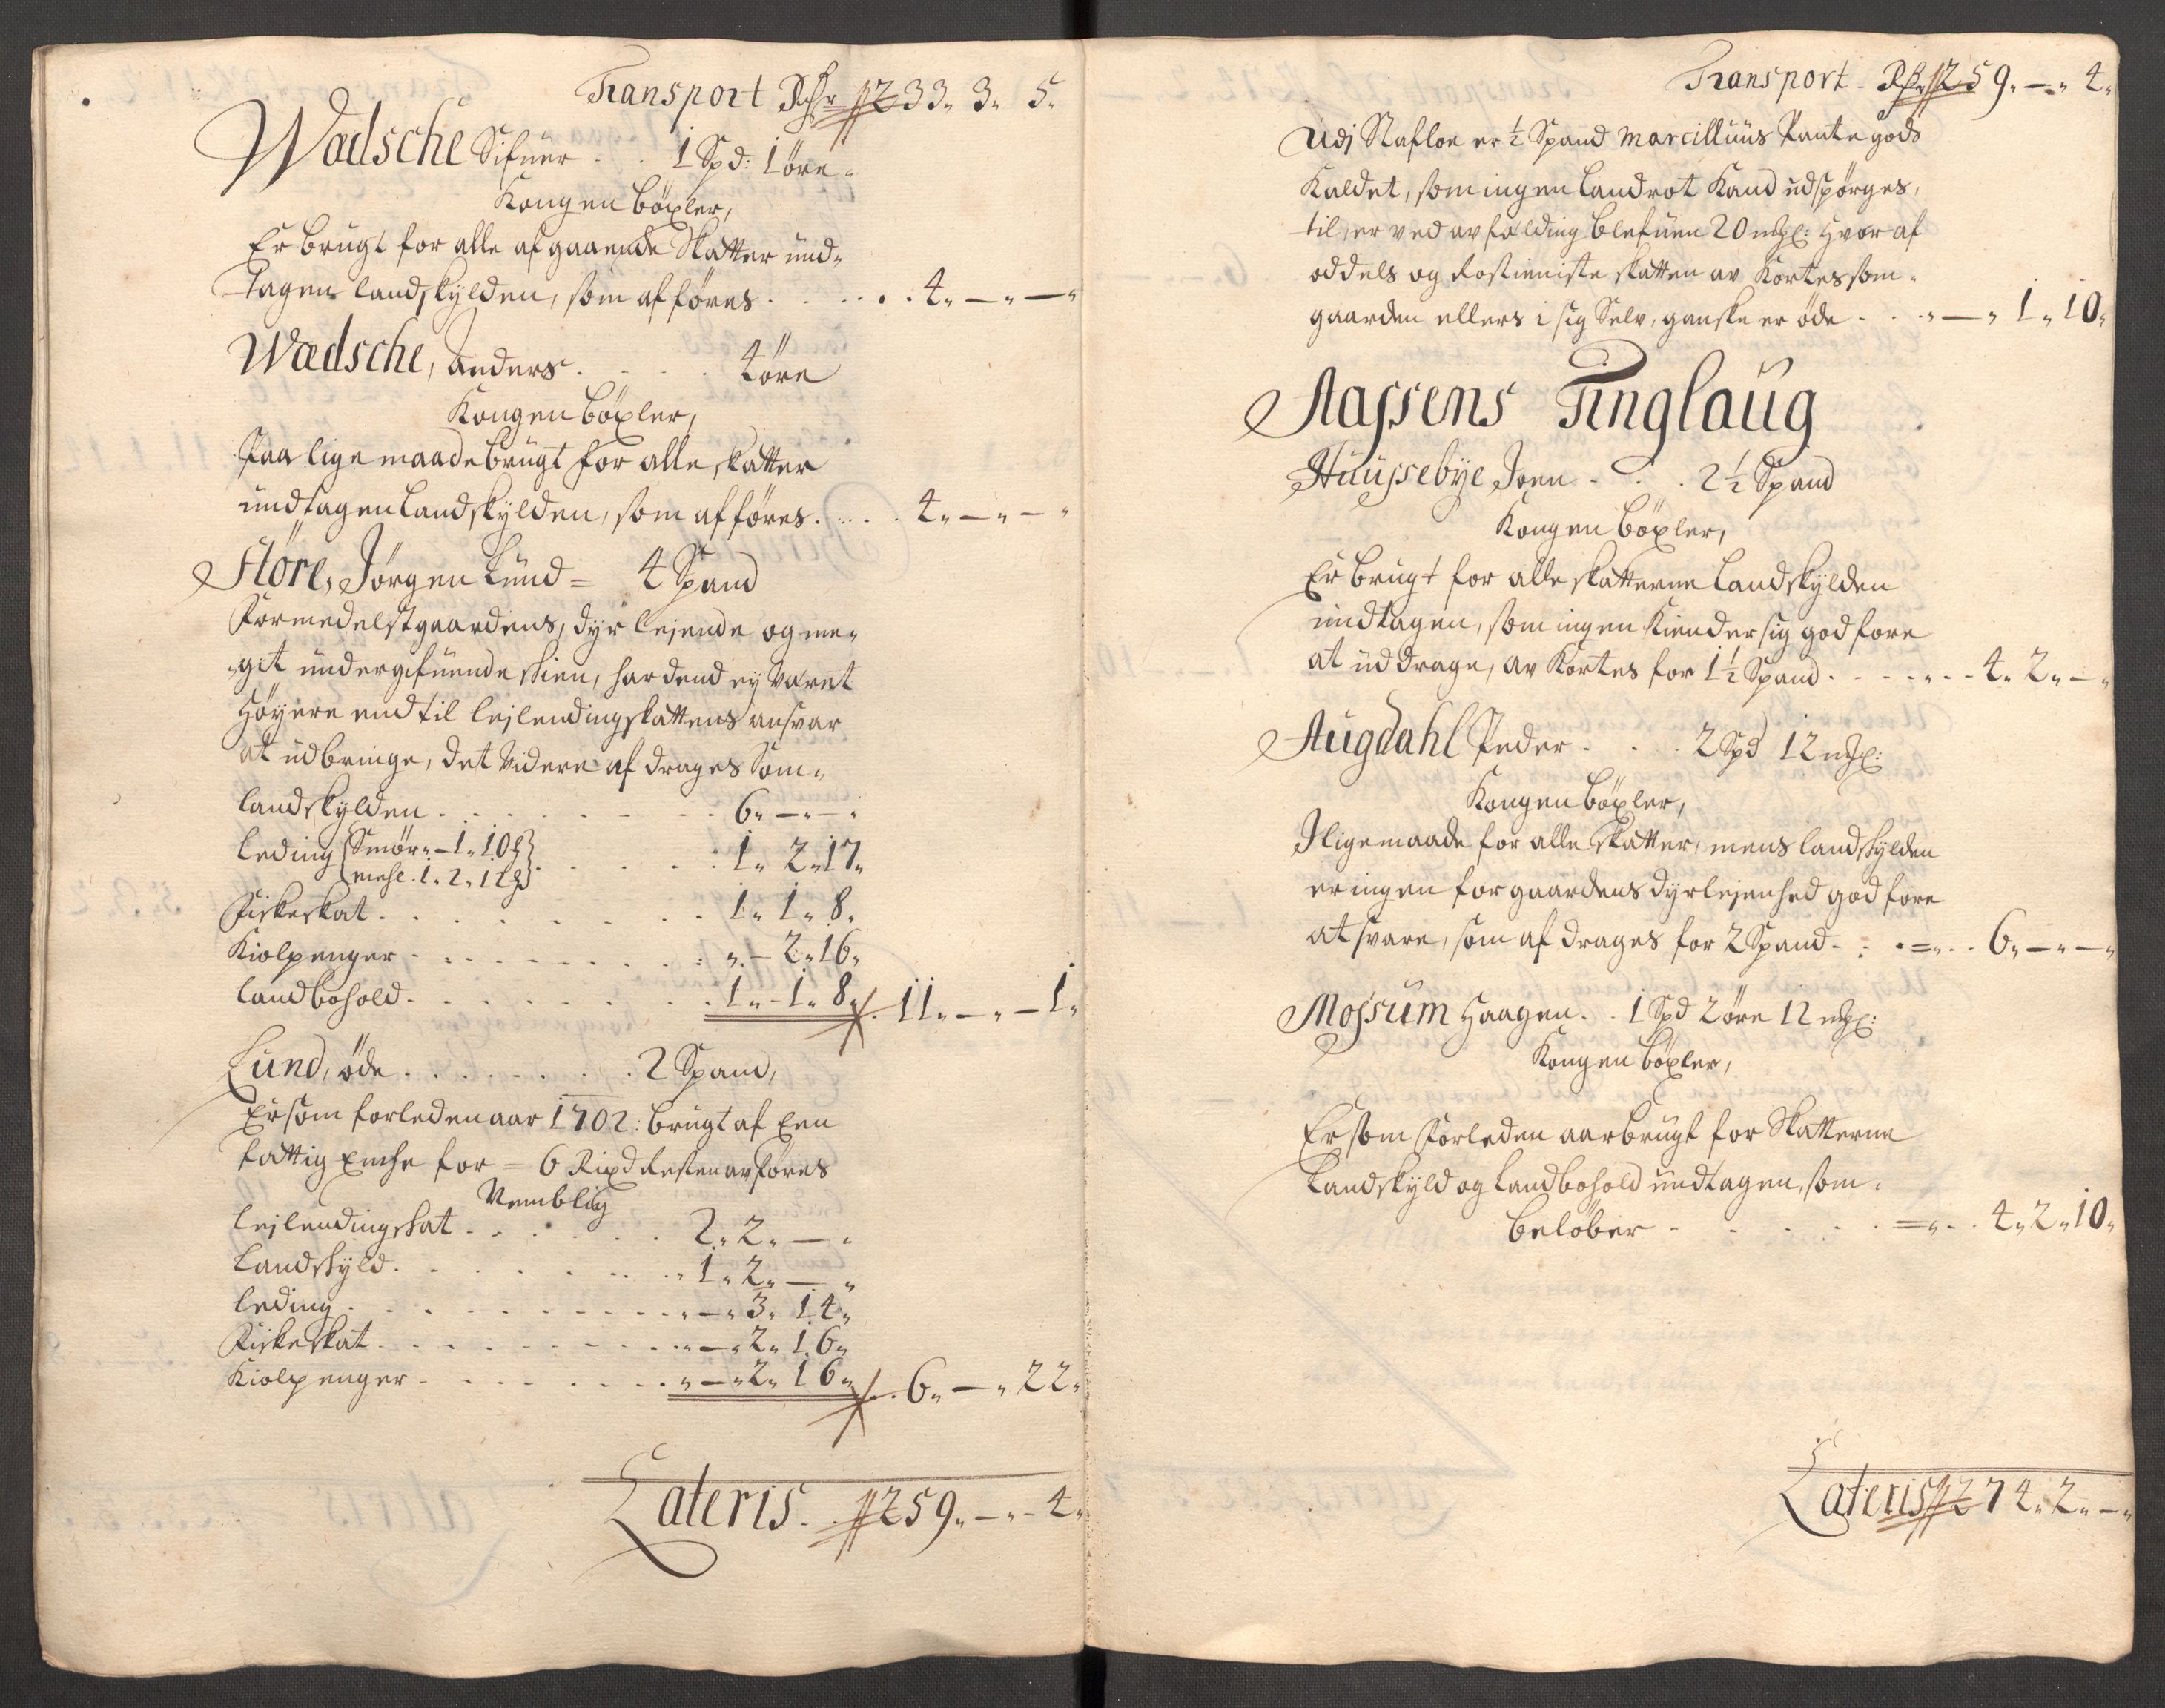 Transport Rdr 1233„ 3„ 5„
Wadsche Sifuer . . 1 Spd: 1 öre„
Kongen böxler,
Er brugt for alle afgaaende Skatter und„
tagen landskylden, som afføres . . . . . . 4„ — „ — „
Wædsche, Anders . . . . 4 öre
Kongen böxler,
Paa lige maade brugt for alle skatter
undtagen landskylden, som afføres . . . . . 4„ — „ — „
Störe, Jörgen Lund = 4 Spand
Formedelst gaardens, dyr lejende og me„
„git undergifuende skien, har dend ej været
höyere end til lejlendingskattens ansvar
at udbringe, det videre afdrages som„
landskylden . . . . . . 6„ — „ — „
leding {Smör„ — 1„ 10 ß} {mehl . 1„ 2„ 12 ß} . . . . 1„ 2„ 17„
Fiskeskat . . . . . . . 1„ 1„ 8„
Kiolpenger . . . . . . . „ — 2„ 16„
landbohold . . . . . . . 1„ — 1„ 8„ . 11„ — „ — 1„
Lund, öde . . . . . . . 2 Spand,
Er som forleden aar 1702: brugt af Een
fattig Enche for = 6 Rixd Resten afføres
Nemblig
lejlendingskat . . . . . . 2„ 2„ — „
Landskyld . . . . . . . „ 1„ 2„ — „
leding . . . . . . . . „ — „ 3„ 14„
Fiskeskat . . . . . . . „ — „ 2„ 16„
Kiolpenger . . . . . . . „ — „ 2„ 16„ . 6„ — „ 22„
Lateris . . 1259„ — „ — 4„
Transport . Rdr 1259„ — „ 4„
Udj Stafloe er ½ Spand Marcilluus Pante gods
Kaldet, som ingen landrot Kand udspörges,
til, er ved affælding blefuen 20 mkl: hvor af
oddels og Rostieniste skatten af Kortes som„
gaarden ellers i sig Selv, ganske er öde . . . „ — „ 1„ 10„
Aassens Tinglaug
Huussebye Joen . . . 2½ Spand
Kongen böxler,
Er brugt for alle skatterne landskylden
undtagen, som ingen kiender sig god fore
at uddrage, af Kortes for 1½ Spand . . . . „ . . 4„ 2„ — „
Augdahl Peder . . . 2 Spd 12 mkl:
Kongen böxler,
I lige maade for alle skatter, mens landskylden
er ingen for gaardens dyr lejenhed god fore
at svare, som afdrages for 2 Spand . . = „ . . 6„ — „ — „
Mossum Haagen . . 1 Spd 2 öre 12 mkl:
Kongen böxler,
Er som forleden aar brugt for Skatterne
Landskyld og Landbohold undtagen, som„
belöber . . . . . = „ . . 4„ 2„ 10„
Lateris 1274„ 2„ — „